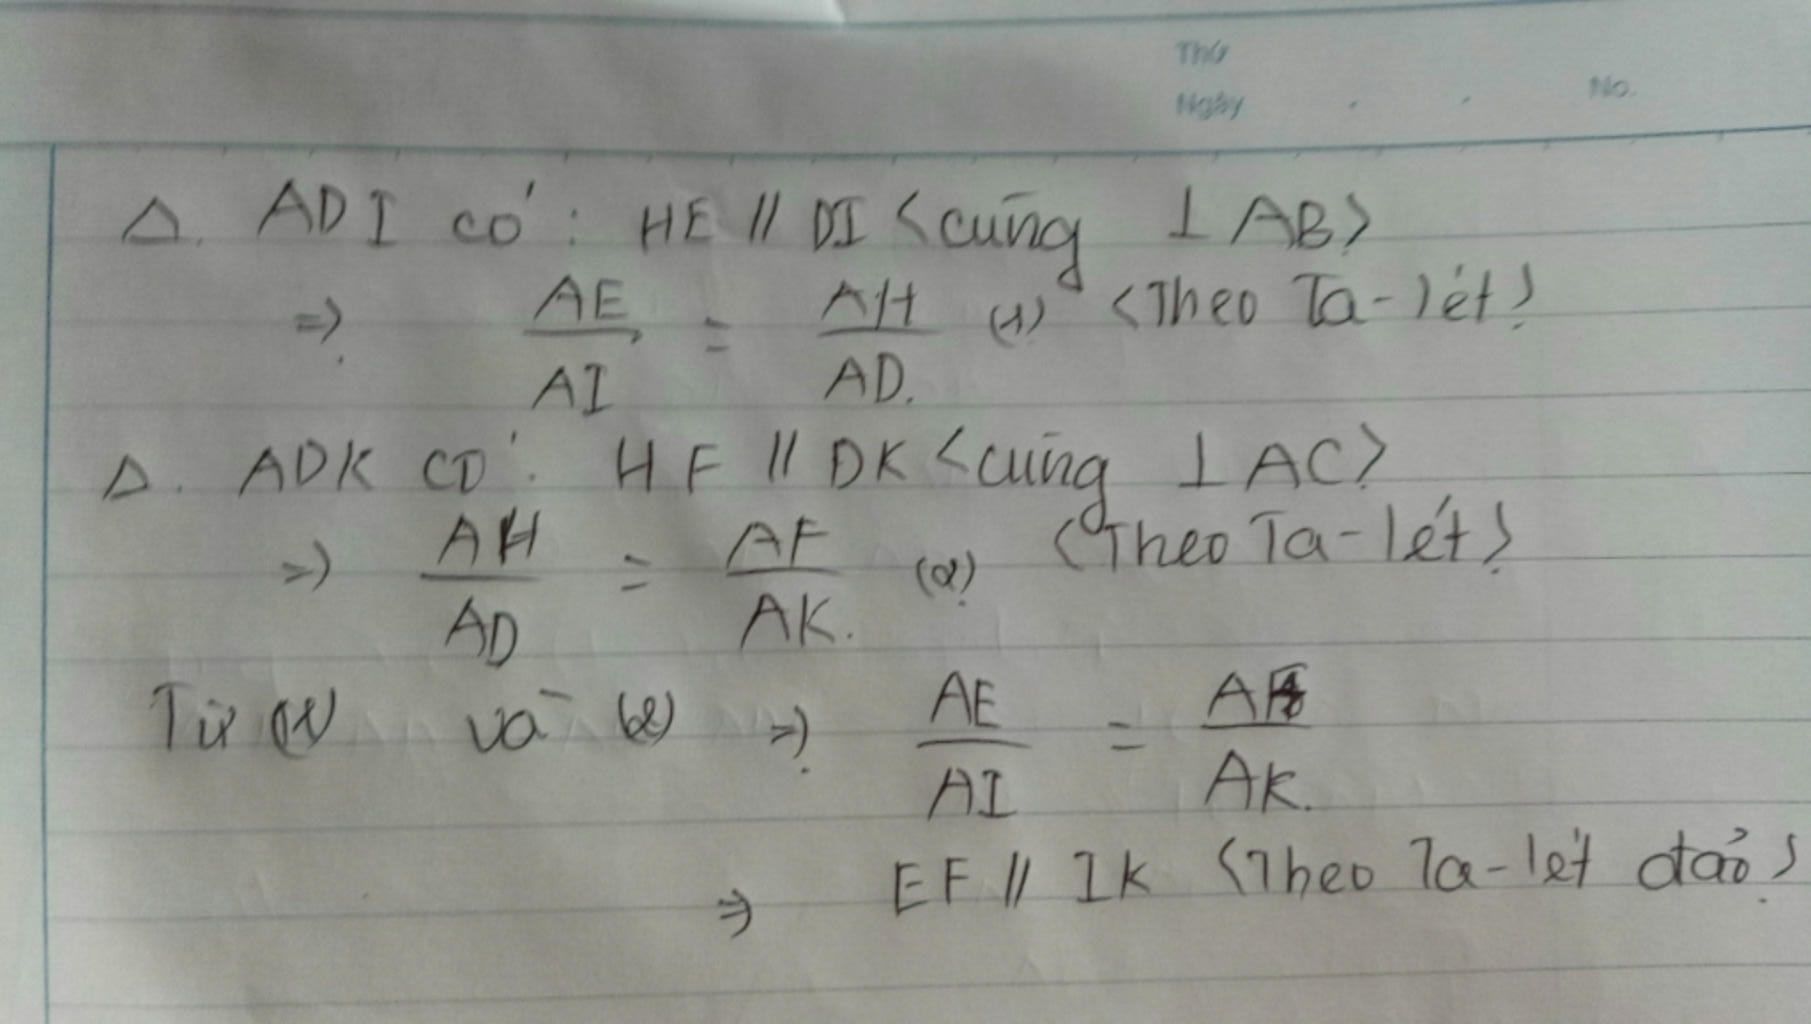 Thứ
Ngày . . No.
Δ. ADI có : HE // DI <cùng ⊥ AB>
=> AE/AI = AH/AD. (1) <Theo Ta-lét>
Δ. ADK có : HF // DK <cùng ⊥ AC>
=> AH/AD = AF/AK. (2) <Theo Ta-lét>
Từ (1) và (2) => AE/AI = AF/AK.
=> EF // IK <Theo Ta-lét đảo>